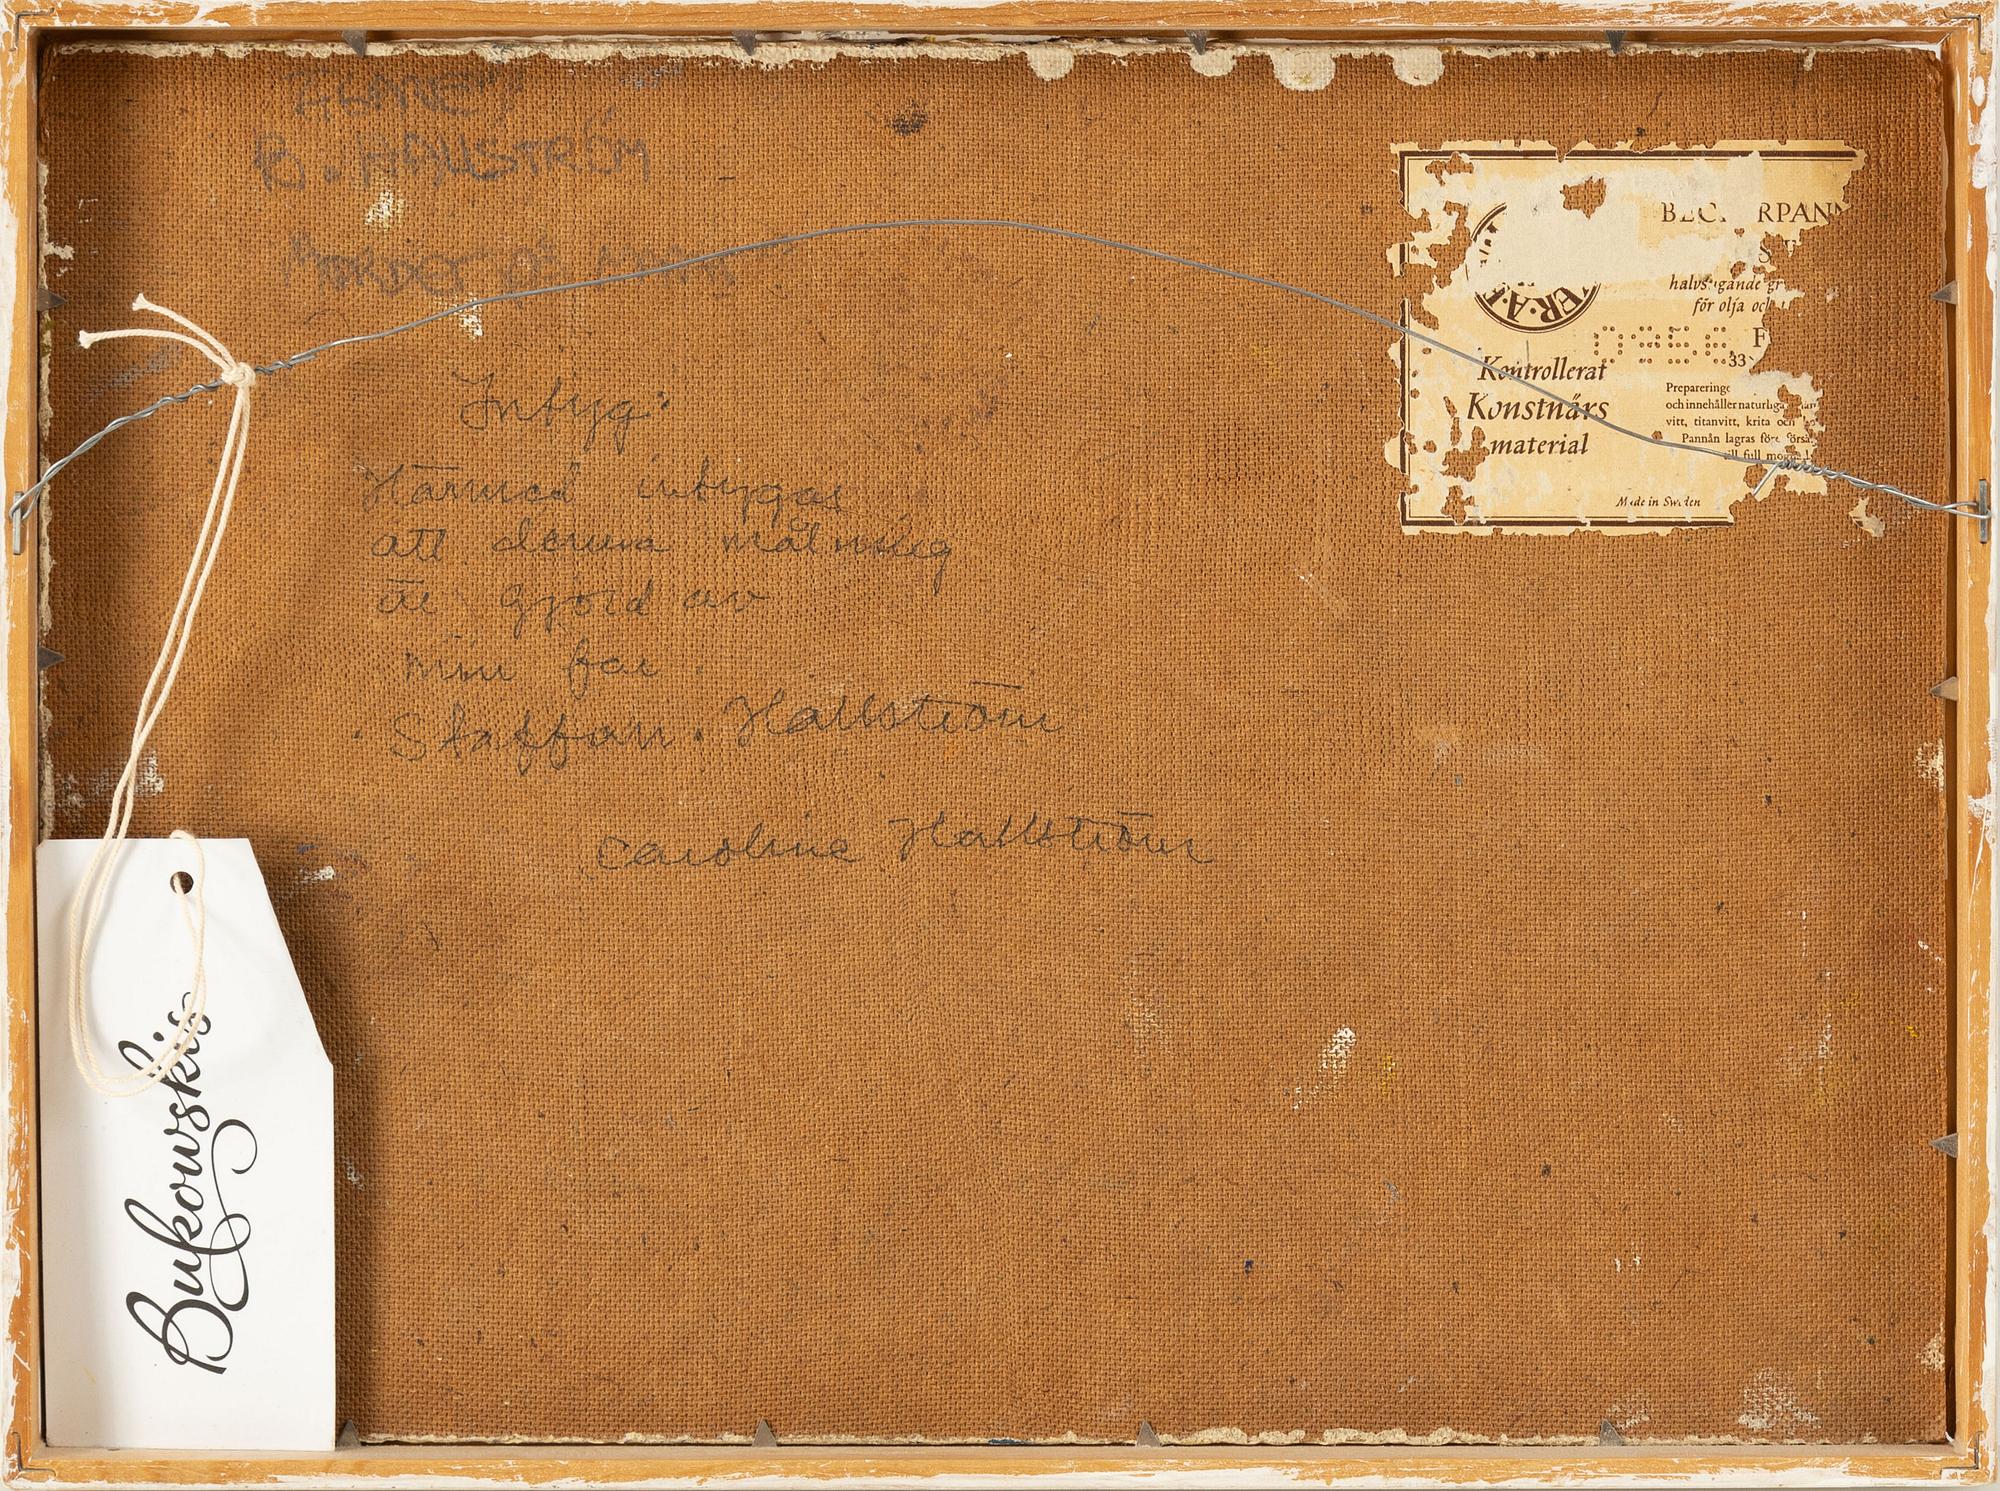 B. HALLSTRÖM
Intyg:
Härmed intygas
att denna målning
är gjord av
min far.
Staffan. Hallström
Caroline Hallström
halvsugande gr
för olja oc
0956
33
Kontrollerat
Konstnärs
material
Prepareringe
och innehåller naturliga
vitt, titanvitt, krita och
Pannån lagras före förså
till full mog
Made in Sweden
Bukowskis